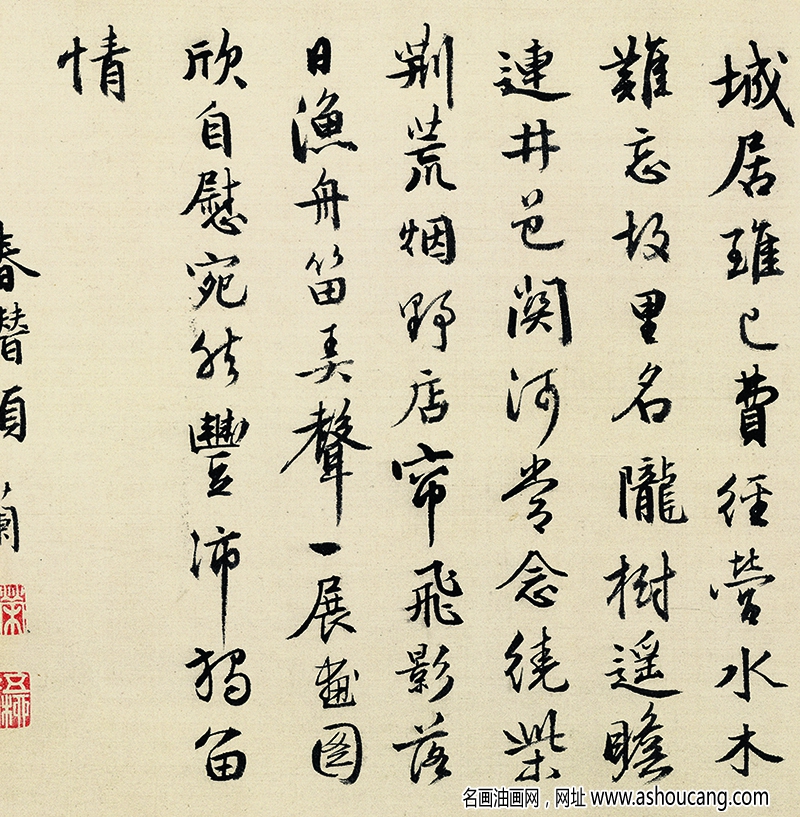 城居雖已費經營水木
難忘故里名隴樹遥瞻
連井邑関河常念繞柴
荆荒烟野店帘飛影落
日漁舟笛弄聲一展畫圖
欣自慰宛然豐沛獨留
情
名画油画网，网址 www.ashoucang.com